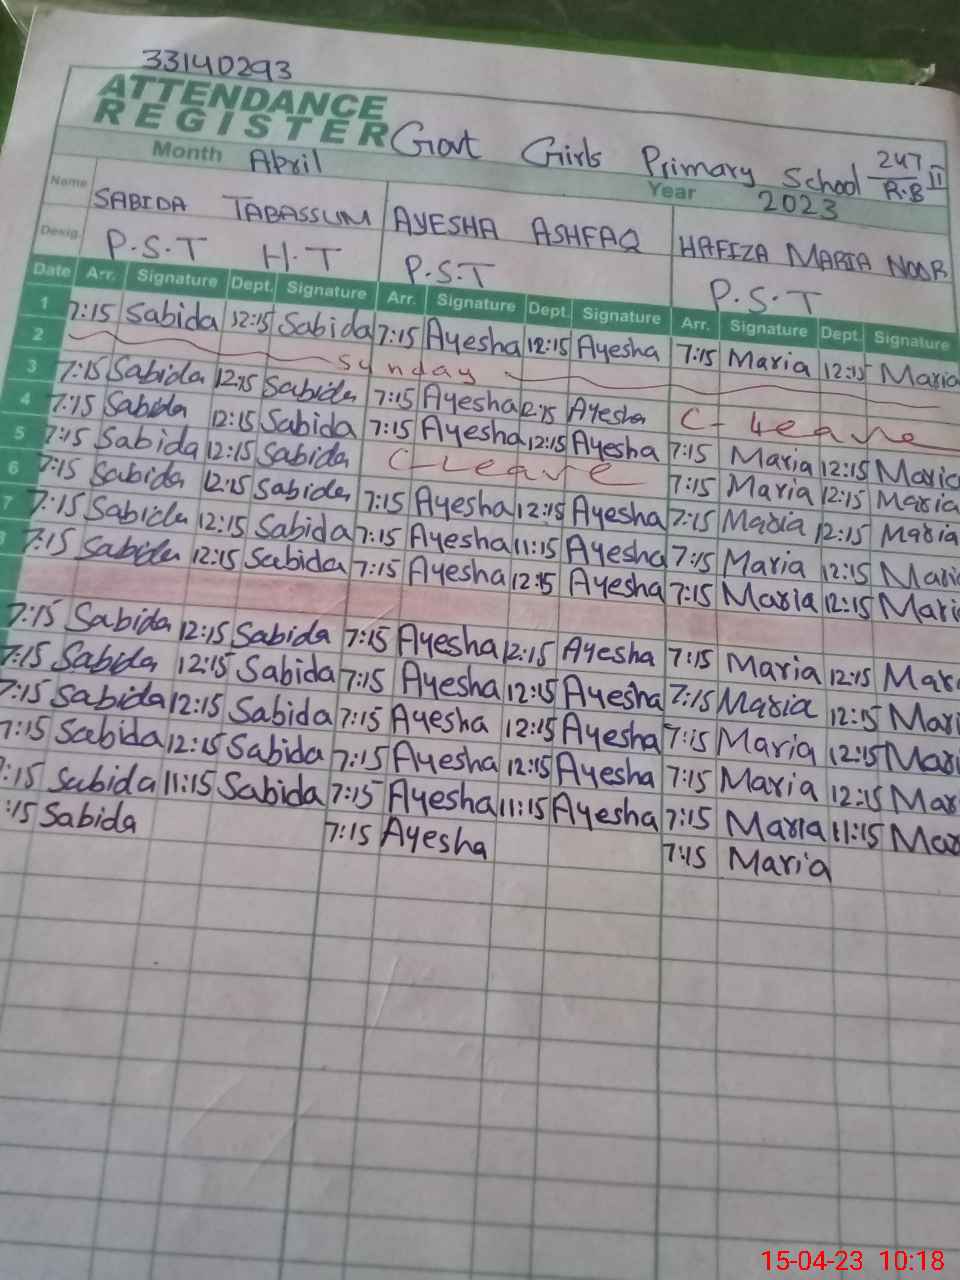 33140293
ATTENDANCE
REGISTER Govt Girls Primary School 247/R.B II
Month April Year 2023
Name SABIDA TABASSUM AYESHA ASHFAQ HAFIZA MARIA NOOR
Desig. P.S.T H.T P.S.T P.S.T
Date Arr. Signature Dept. Signature Arr. Signature Dept. Signature Arr. Signature Dept. Signature
1 7:15 Sabida 12:15 Sabida 7:15 Ayesha 12:15 Ayesha 7:15 Maria 12:15 Maria
2 Sunday
3 7:15 Sabida 12:15 Sabida 7:15 Ayesha 12:15 Ayesha C-Leave
4 7:15 Sabida 12:15 Sabida 7:15 Ayesha 12:15 Ayesha 7:15 Maria 12:15 Maria
5 7:15 Sabida 12:15 Sabida C-Leave 7:15 Maria 12:15 Maria
6 7:15 Sabida 12:15 Sabida 7:15 Ayesha 12:15 Ayesha 7:15 Maria 12:15 Maria
7 7:15 Sabida 12:15 Sabida 7:15 Ayesha 11:15 Ayesha 7:15 Maria 12:15 Maria
7:15 Sabida 12:15 Sabida 7:15 Ayesha 12:15 Ayesha 7:15 Maria 12:15 Mari
7:15 Sabida 12:15 Sabida 7:15 Ayesha 12:15 Ayesha 7:15 Maria 12:15 Mar
7:15 Sabida 12:15 Sabida 7:15 Ayesha 12:15 Ayesha 7:15 Maria 12:15 Mari
7:15 Sabida 12:15 Sabida 7:15 Ayesha 12:15 Ayesha 7:15 Maria 12:15 Mari
7:15 Sabida 12:15 Sabida 7:15 Ayesha 12:15 Ayesha 7:15 Maria 12:15 Mar
:15 Sabida 11:15 Sabida 7:15 Ayesha 11:15 Ayesha 7:15 Maria 11:15 Mar
:15 Sabida 7:15 Ayesha 7:15 Maria
15-04-23 10:18